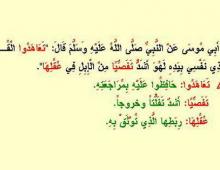 أَبِي مُوسَى عَنِ النَّبِيِّ صَلَّى اللَّهُ عَلَيْهِ وَسَلَّمَ قَالَ: "تَعَاهَدُوا
نَفْسِي بِيَدِهِ لَهُوَ أَشَدُّ تَفَصِّيًا مِنَ الْإِبِلِ فِي عُقُلِهَا".
تَعَاهَدُوا: حَافِظُوا عَلَيْهِ بِمُرَاجَعَتِهِ.
تَفَصِّيًا: أَشَدُّ تَفَلُّتًا وخروجاً.
عُقُلِهَا: رَبطِهَا الَّذِي تُوثَقُ بِهِ.